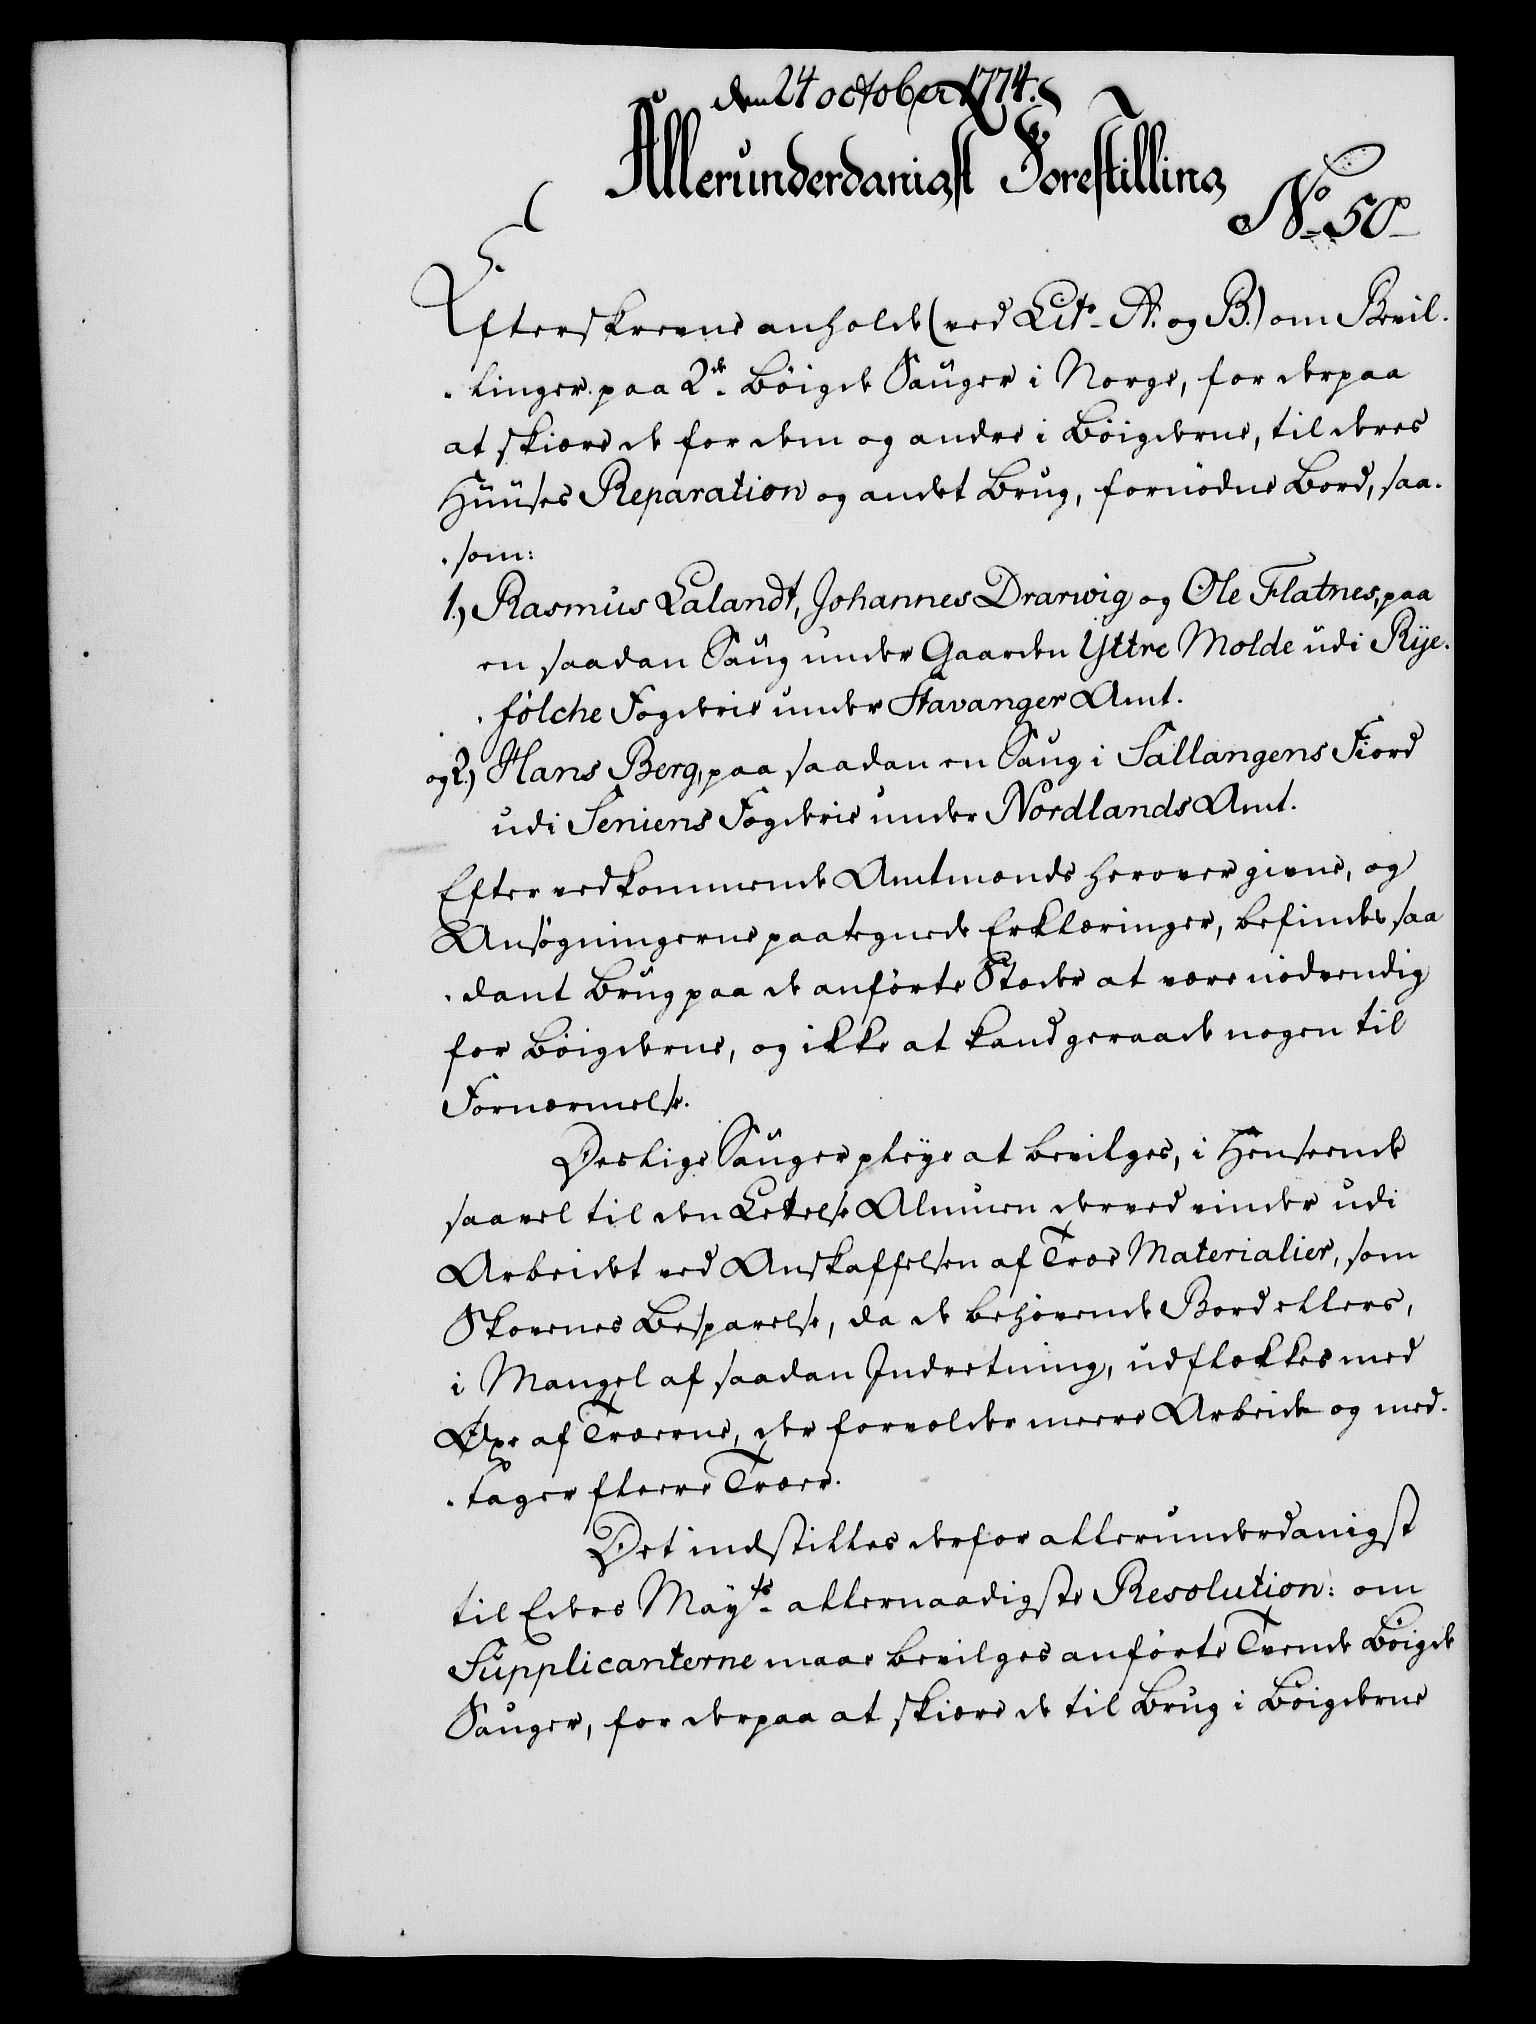 den 24 october 1774.
Allerunderdanigst Forestilling
No 50
Efterskrevne anholde (ved Lit. A. og B.) om Bevil-
-linger paa 2de Böigde Sauger i Norge, for derpaa
at skiære de for dem og andre i Böigderne, til deres
Huuses Reparation og andet Brug, fornödne Bord, saa-
-som:
1.) Rasmus Lalandt, Johannes Drarwig og Ole Flatnes, paa
en saadan Saug under Gaarden Yttre Molde udi Rye-
-fölche Fogderie under Stavanger Amt.
og 2.) Hans Berg, paa saadan en Saug i Sallangens Fiord
udi Seniens Fogderie under Nordlands Amt.
Efter vedkommende Amtmænds herover givne, og
Ansögningerne paategnede Erklæringer, befindes saa
-dant Brug paa de anförte Stæder at være nödvendig
for Böigderne, og ikke at kand geraade nogen til
Fornærmelse.
Deslige Sauger pleye at bevilges, i Henseende
saavel til den Lettelse Almuen derved vinder udi
Arbeidet ved Anskaffelsen af Træe Materialier, som
Skovenes Besparelse, da de behövende Bord ellers,
i Mangel af saadan Indretning, udflækkes med
Öxe af Træerne, der forvolder meere Arbeide og med-
-tager fleere Træer.
Det indstilles derfor allerunderdanigst
til Eders Mayts allernaadigste Resolution: om
Supplicanterne maae bevilges anförte Tvende Böigde
Sauger, for derpaa at skiære de til Brug i Böigderne